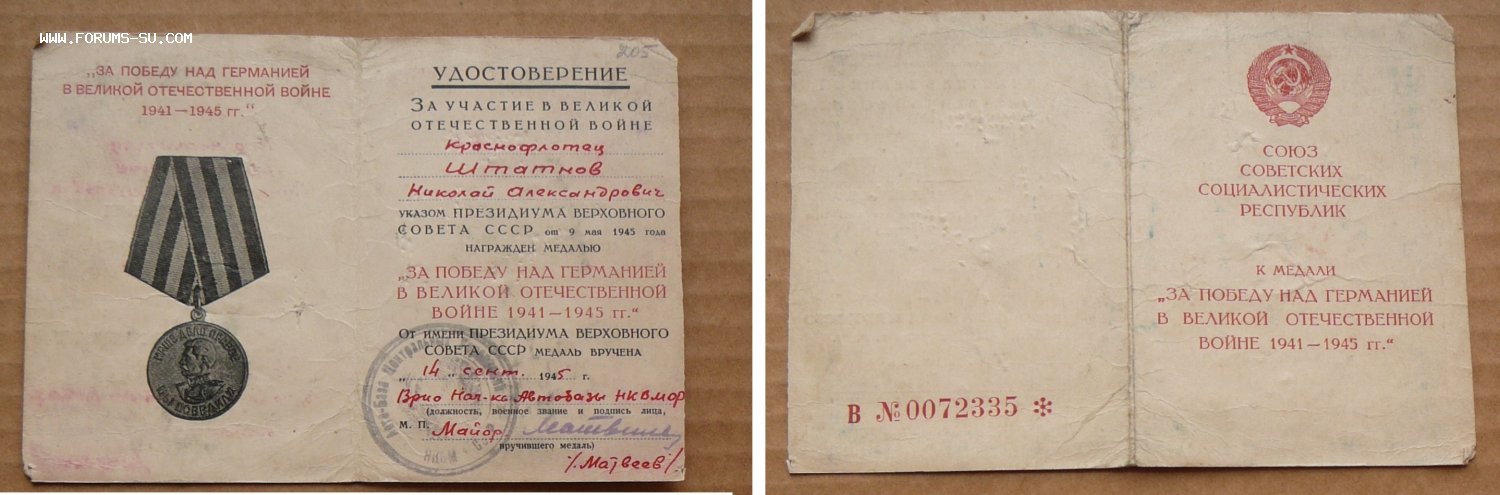 www.forums-su.com
205
„ЗА ПОБЕДУ НАД ГЕРМАНИЕЙ
В ВЕЛИКОЙ ОТЕЧЕСТВЕННОЙ ВОЙНЕ
1941—1945 гг.“
УДОСТОВЕРЕНИЕ
ЗА УЧАСТИЕ В ВЕЛИКОЙ
ОТЕЧЕСТВЕННОЙ ВОЙНЕ
Краснофлотец
Штатнов
Николай Александрович
УКАЗОМ ПРЕЗИДИУМА ВЕРХОВНОГО
СОВЕТА СССР от 9 мая 1945 года
НАГРАЖДЕН МЕДАЛЬЮ
„ЗА ПОБЕДУ НАД ГЕРМАНИЕЙ
В ВЕЛИКОЙ ОТЕЧЕСТВЕННОЙ
ВОЙНЕ 1941—1945 гг.“
ОТ ИМЕНИ ПРЕЗИДИУМА ВЕРХОВНОГО
СОВЕТА СССР МЕДАЛЬ ВРУЧЕНА
„14“ сент. 1945 г.
Врио Нач-ка Автобазы НКВМФ
(должность, военное звание и подпись лица,
М. П. Майор
вручившего медаль)
/Матвеев/
СОЮЗ
СОВЕТСКИХ
СОЦИАЛИСТИЧЕСКИХ
РЕСПУБЛИК
К МЕДАЛИ
„ЗА ПОБЕДУ НАД ГЕРМАНИЕЙ
В ВЕЛИКОЙ ОТЕЧЕСТВЕННОЙ
ВОЙНЕ 1941—1945 гг.“
В №0072335 *